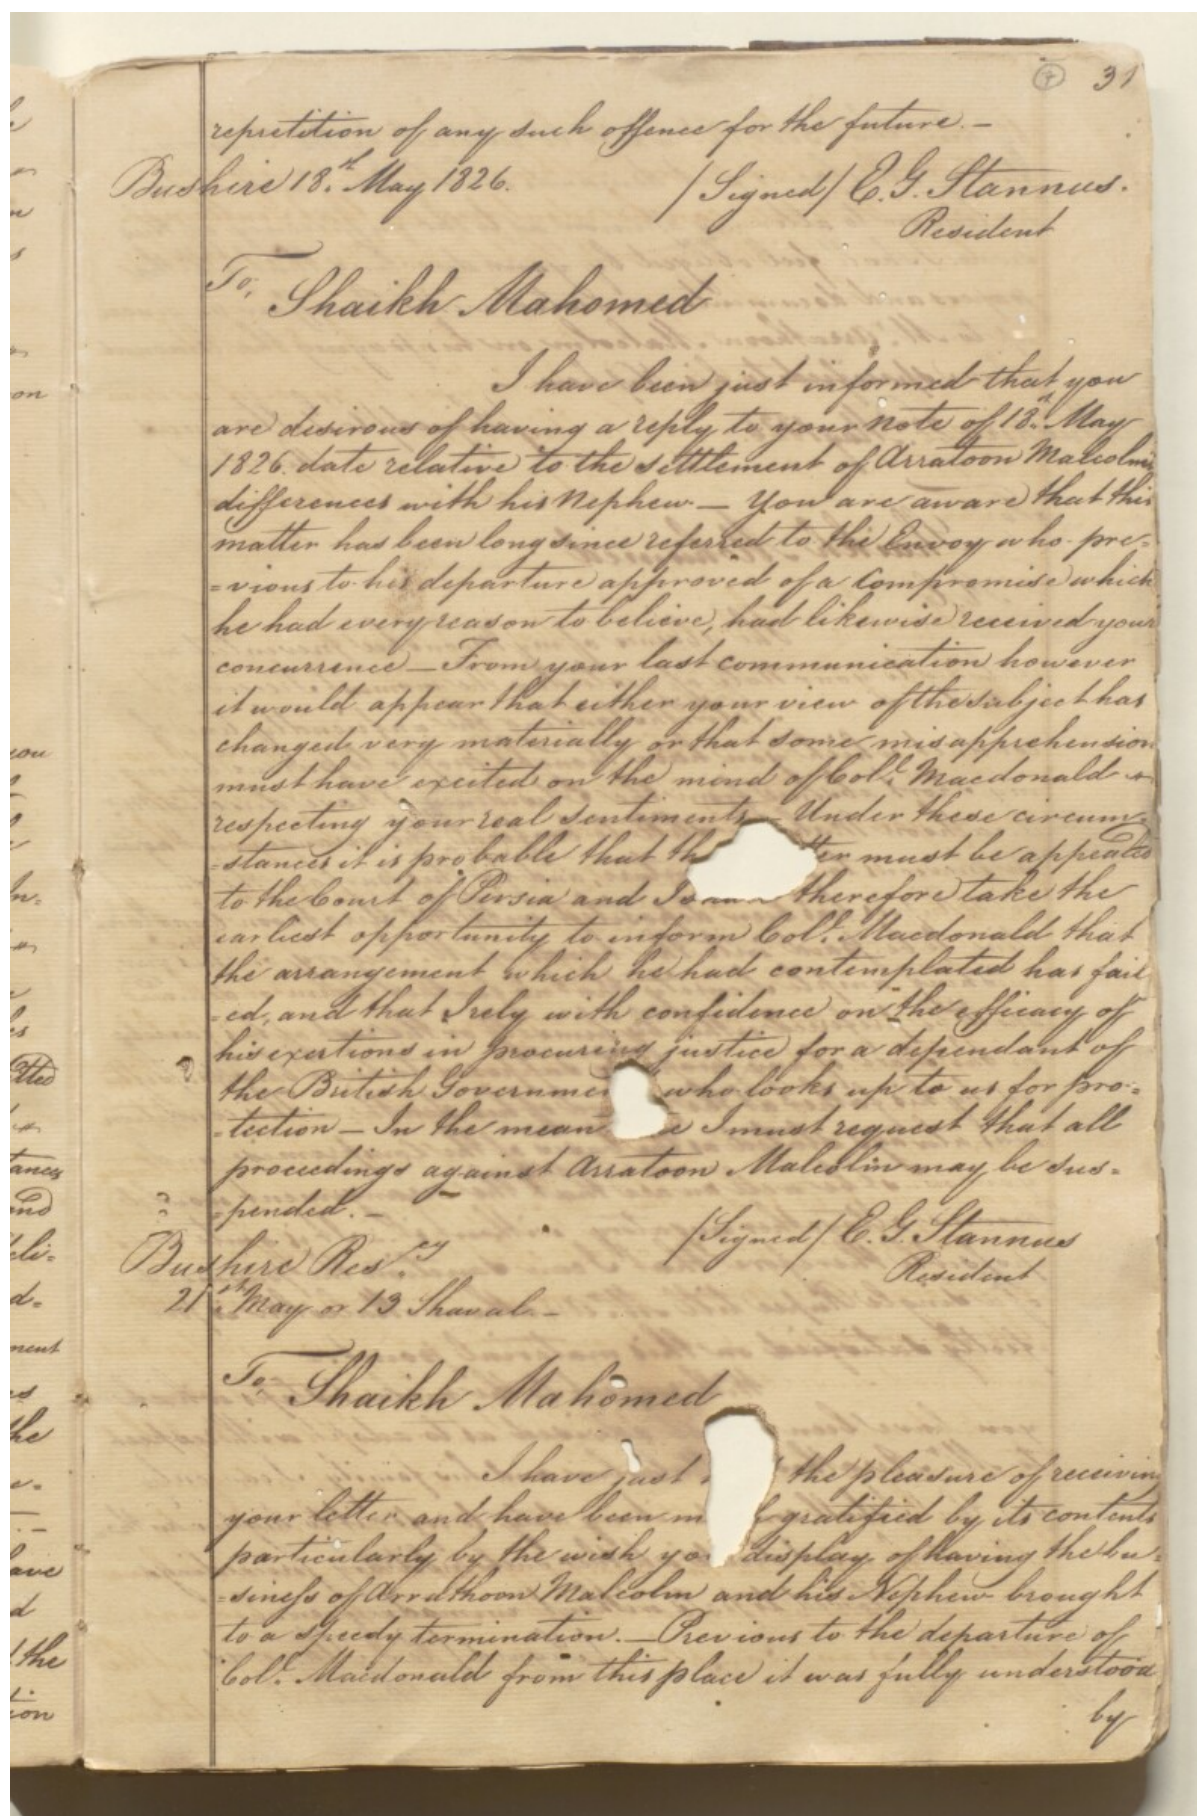 31
repretition of any such offence for the future. —
Bushire 18.th May 1826.
/Signed/ E. G. Stannus.
Resident
To,
Shaikh Mahomed
I have been just informed that you
are desirous of having a reply to your note of 18.th May
1826. date relative to the settlement of Arratoon Malcolm's
differences with his Nephew — You are aware that this
matter has been long since referred to the Envoy who pre=
=vious to his departure approved of a Compromise which
he had every reason to believe, had likewise received your
concurrence — From your last communication however
it would appear that either your view of the subject has
changed very materially or that some misapprehension
must have excited on the mind of Col.l Macdonald
respecting your real Sentiments — Under these circum=
=stances it is probable that th ter must be appealed
to the Court of Persia and I therefore take the
earliest opportunity to inform Col.l Macdonald that
the arrangement which he had contemplated has fail
=ed, and that I rely with confidence on the efficacy of
his exertions in procuring justice for a dependant of
the British Governmen who looks up to us for pro=
=tection — In the mean e I must request that all
proceedings against Arratoon Malcolm may be sus=
=pended. —
/Signed/ E. G. Stannus
Bushire Res.cy
Resident
21st May or 13 Shaval —
To,
Shaikh Mahomed
I have just the pleasure of receiving
your letter and have been m gratified by its contents
particularly by the wish yo display of having the bu=
=siness of Arrathoon Malcolm and his Nephew brought
to a speedy termination. — Previous to the departure of
Col.l Macdonald from this place it was fully understood
by